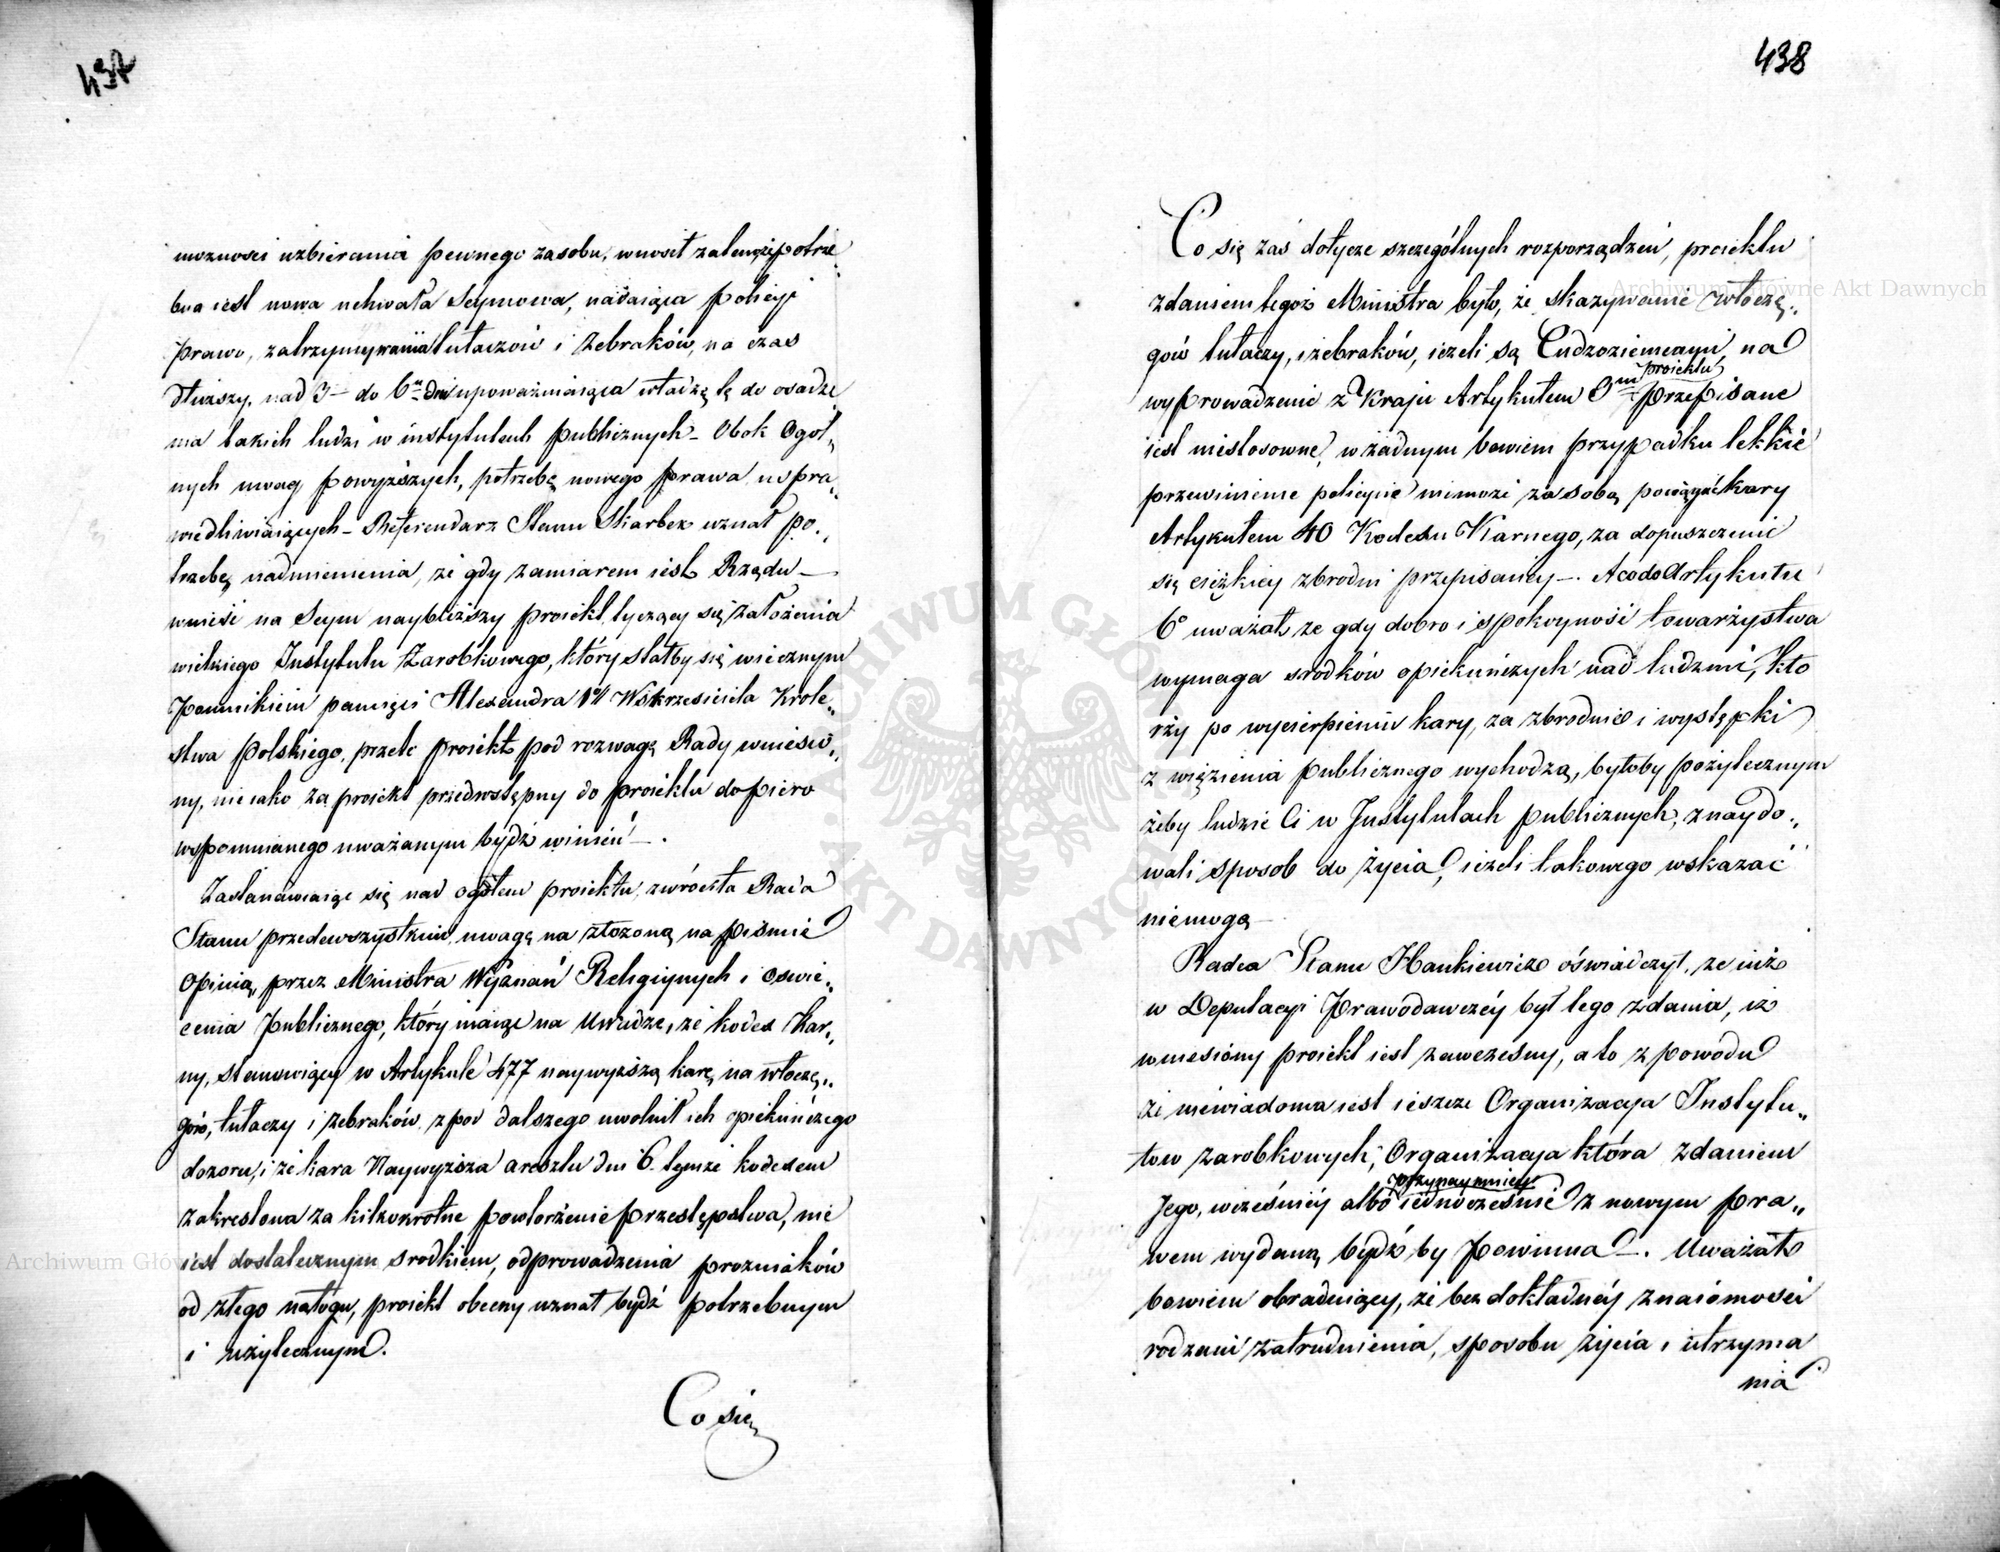 437
możności uzbierania pewnego zasobu, wnosił zatem, że potrze
bna iest nowa uchwała Seymowa, nadaiąca policyi
prawo, zatrzymywania tułaczów i Żebraków, na czas
dłuższy, nad 3 – do 6 dni upoważniaiąca władzę tę do osadze
nia takich ludzi w instytutach publicznych – Obok Ogól„
nych uwag powyższych, potrzebę nowego prawa uspra„
wiedliwiaiących – Referendarz Stanu Skarbek uznał po„
trzebę nadmienienia, że gdy zamiarem iest Rządu –
wnieść na Seym naybliższy proiekt, tyczący się założenia
wielkiego Instytutu Zarobkowego, który stałby się wiecznym
Pomnikiem pamięci Alexandra I Wskrzesiciela Króle„
stwa Polskiego, przeto proiekt pod rozwagę Rady wniesio„
ny, nieiako za proiekt przedwstępny do proiektu dopiero
wspomnianego uważanym bydź winien –.
Zastanawiaiąc się nad ogółem proiektu, zwróciła Rada
Stanu przedewszystkiem uwagę na złożoną na piśmie
Opinią, przez Ministra Wyznań Religiynych i Oswie„
cenia Publicznego, który maiąc na Uwadze, że kodex Kar„
ny, stanowiący w Artykule 477 naywyższą karę na włoczę„
gów, tułaczy i żebraków, z pod dalszego uwolnił ich opiekuńczego
dozoru, i że kara Naywyższa aresztu dni 6. tymże kodexem
zakreslona za kilkokrotne powtórzenie przestępstwa, nie
iest dostatecznym srodkiem, odprowadzenia prozniaków
od złego nałogu, proiekt obecny uznał bydź potrzebnym
i użytecznym.
Co się
438
Co się zaś dotycze szczególnych rozporządzeń, proiektu
zdaniem tegoż Ministra było, że skazywanie włoczę„
gów tułaczy, i żebraków, ieżeli są Cudzoziemcami, na
proiektu
wyprowadzenie z Kraju Artykułem 3m przepisane
iest niestosowne, w żadnym bowiem przypadku lekkie
przewinienie policyine niemoże za sobą pociągnąć kary
Artykułem 40 Kodexu Karnego, za dopuszczenie
się cięzkiey zbrodni przepisaney –. A co do Artykułu
6° uważał że gdy dobro i spokoyność towarzystwa
wymaga srodków opiekuńczych nad ludzmi, kto
rzy po wycierpieniu kary, za zbrodnie i występki
z więzienia publicznego wychodzą, byłoby pożytecznym
żeby ludzie Ci w Instytutach publicznych, znaydo„
wali sposob do życia, ieżeli takowego wskazać
niemogą –
Radca Stanu Hankiewicz oświadczył, że iuż
w Deputacyi Prawodawczéy był tego zdania, iż
wniesiony proiekt iest zawczesny, a to z powodu
że niewiadoma iest ieszcze Organizacya Instytu„
tow zarobkowych, Organizacya która zdaniem
przynaymniey
Jego, wcześniéy albo iednocześnie z nowym pra„
wem wydaną bydź by powinna –. Uważał
bowiem obraduiący, że bez dokładnéy znaiomości
rodzaiu zatrudnienia, sposobu życia i utrzyma
nia
ARCHIWUM GŁÓWNE AKT DAWNYCH
Archiwum Główne Akt Dawnych
Archiwum Główne